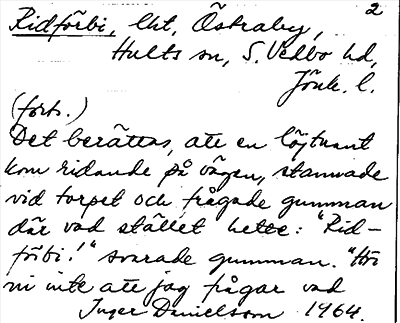 2
Ridförbi, lht, Östraby,
Hults sn, S. Vedbo hd,
Jönk. l.
(forts.)
Det berättas, att en löjtnant
kom ridande på vägen, stannade
vid torpet och frågade gumman
där vad stället hette: "Rid-
förbi!" svarade gumman. "Hör
ni inte att jag frågar vad
Inger Danielsson 1964.